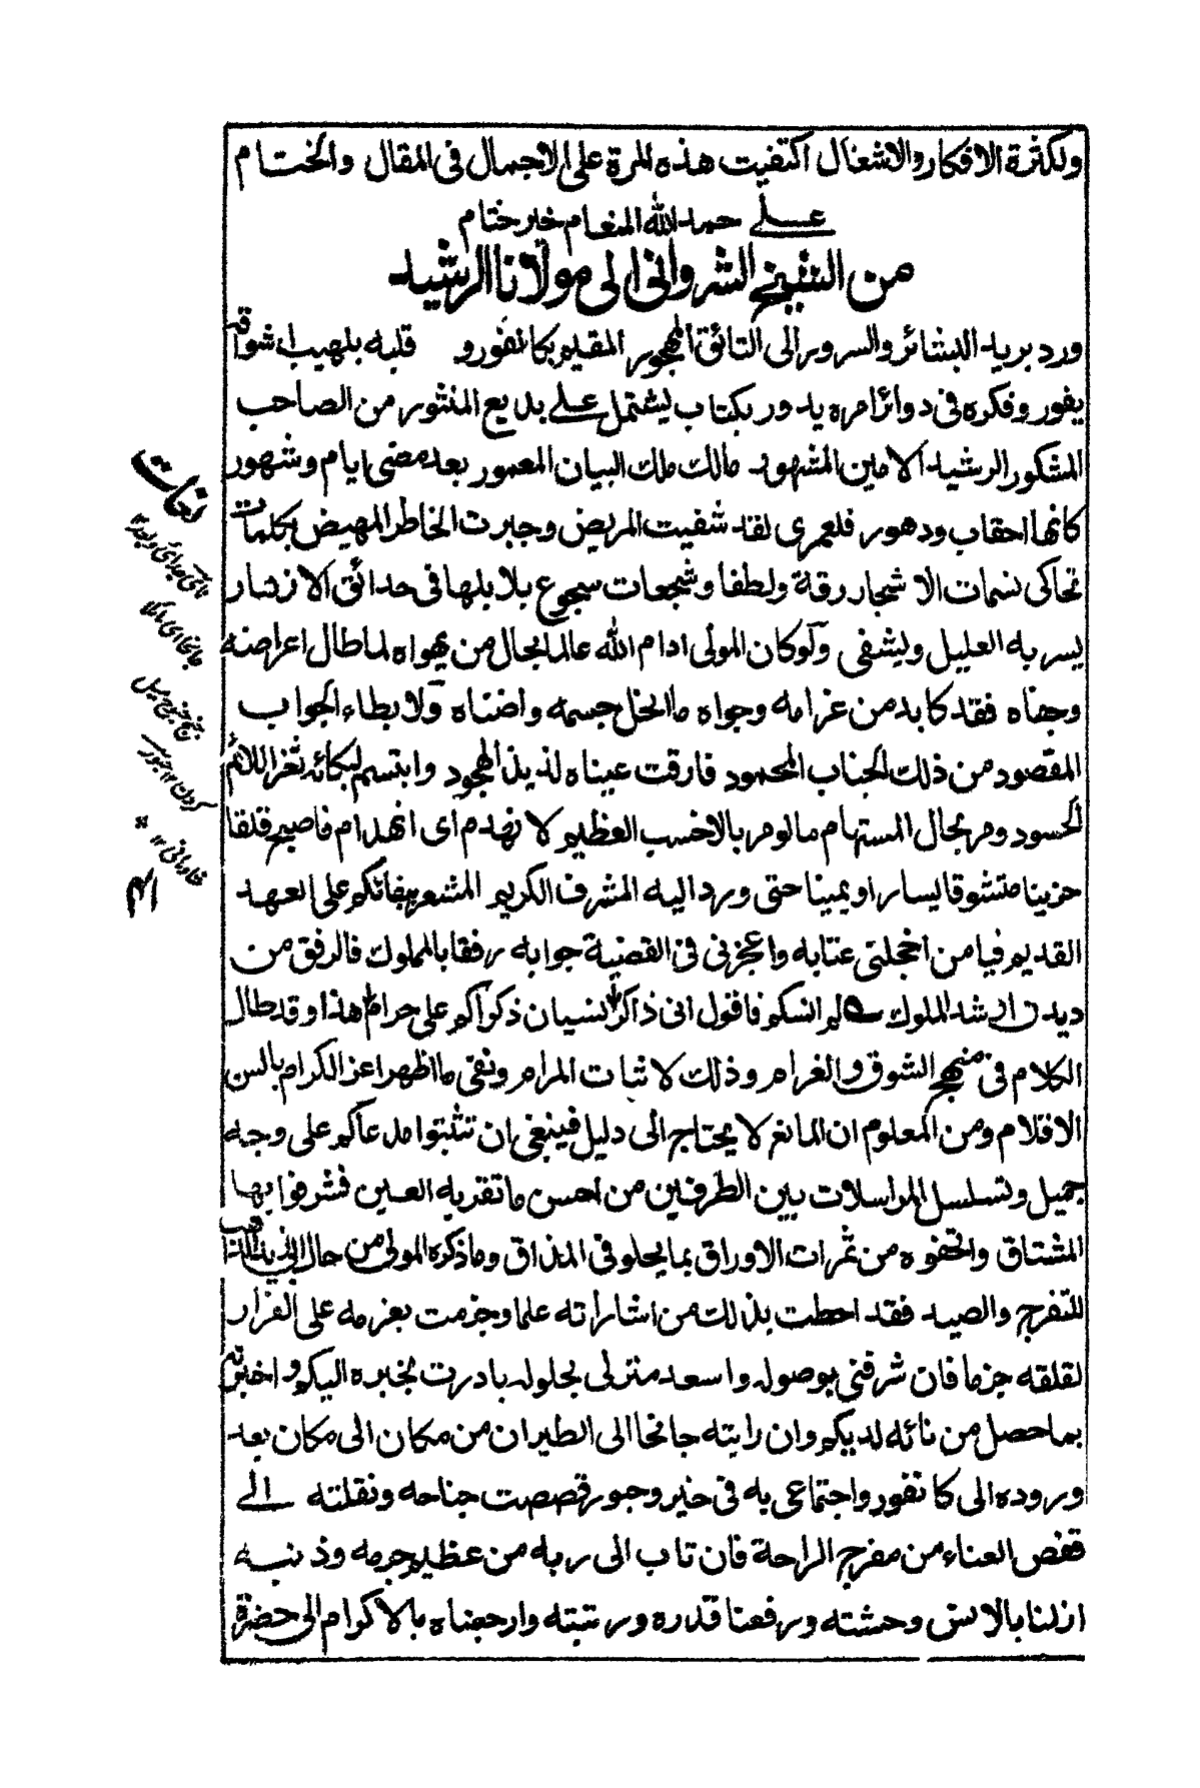 ولكثرة الافكار والاشغال اكتفيت هذه المرة على الاجمال فى المقال والختام
على حمد الله المنعام خير ختام
من الشيخ الشروانى الى مولانا الرشيد
ورد بريد البشائر والسرور الى التائق المهجور المقيم بكانفور و قلبه بلهيب اشواقه
يفور وفكره فى دوائر امره يدور بكتاب يشتمل على بديع المنثور من الصاحب
المشكور الرشيد الامين المشهود مالك ملك البيان المعمور بعد مضى ايام وشهور
كانها احقاب ودهور فلعمرى لقد شفيت المريض وجبرت الخاطر المهيض بكلمات
تحاكى نسمات الاشجار رقة ولطفا وشجعات سجوع بلابلها فى حدائق الازهار
يسر به العليل ويشفى ولوكان المولى ادام الله عالما بحال من يهواه لما طال اعراضه
وجفاه فقد كابد من غرامه وجواه ما انحل جسمه واضناه ولابطاء الجواب
المقصود من ذلك الجناب المحمود فارقت عيناه لذيذ الهجود وابتسم لبكائه ثغر اللائم
الحسود ومر بحال المستهام مالومر بالاخسب العظيم لانهدم اى انهدام فاصبح قلقا
حزينا متشوقا يسارا ويمينا حتى ورد اليه المشرف الكريم المشعر ببقائكم على العهد
القديم فيا من اخجلنى عتابه واعجزنى فى القضية جوابه رفقا بالمملوك فالرفق من
ديدن ارشد الملوك لم انسكم فاقول انى ذاكر نسيان ذكراكم على حرام هذا وقد طال
الكلام فى منهج الشوق والغرام وذلك لاثبات المرام ونفى ما اظهر اعز الكرام بالسن
الاقلام ومن المعلوم ان المانع لا يحتاج الى دليل فينبغى ان تثبتوا مدعاكم على وجه
جميل وتسلسل المراسلات بين الطرفين من احسن ما تقر به العين فشرفوا بها
المشتاق واتحفوه من ثمرات الاوراق بما يحلو فى المذاق وما ذكره المولى من حال
للتفرج والصيد فقد احطت بذلك من اشاراته علما وجزمت بعزمه على الفرار
لقلقه جزما فان شرفنى بوصوله واسعد منزلى بحلوله بادرت بخبره اليكم واخبرته
بما حصل من نائه لديكم وان رايته جانحا الى الطيران من مكان الى مكان بعد
وروده الى كانفور واجتماعى به فى خير وحبور قصصت جناحه ونقلته الى
قفص العناء من مفرج الراحة فان تاب الى ربه من عظيم جرمه وذنبه
ازلنا بالانس وحشته ورفعنا قدره ورتبته وارجعناه بالاكرام الى حضرة